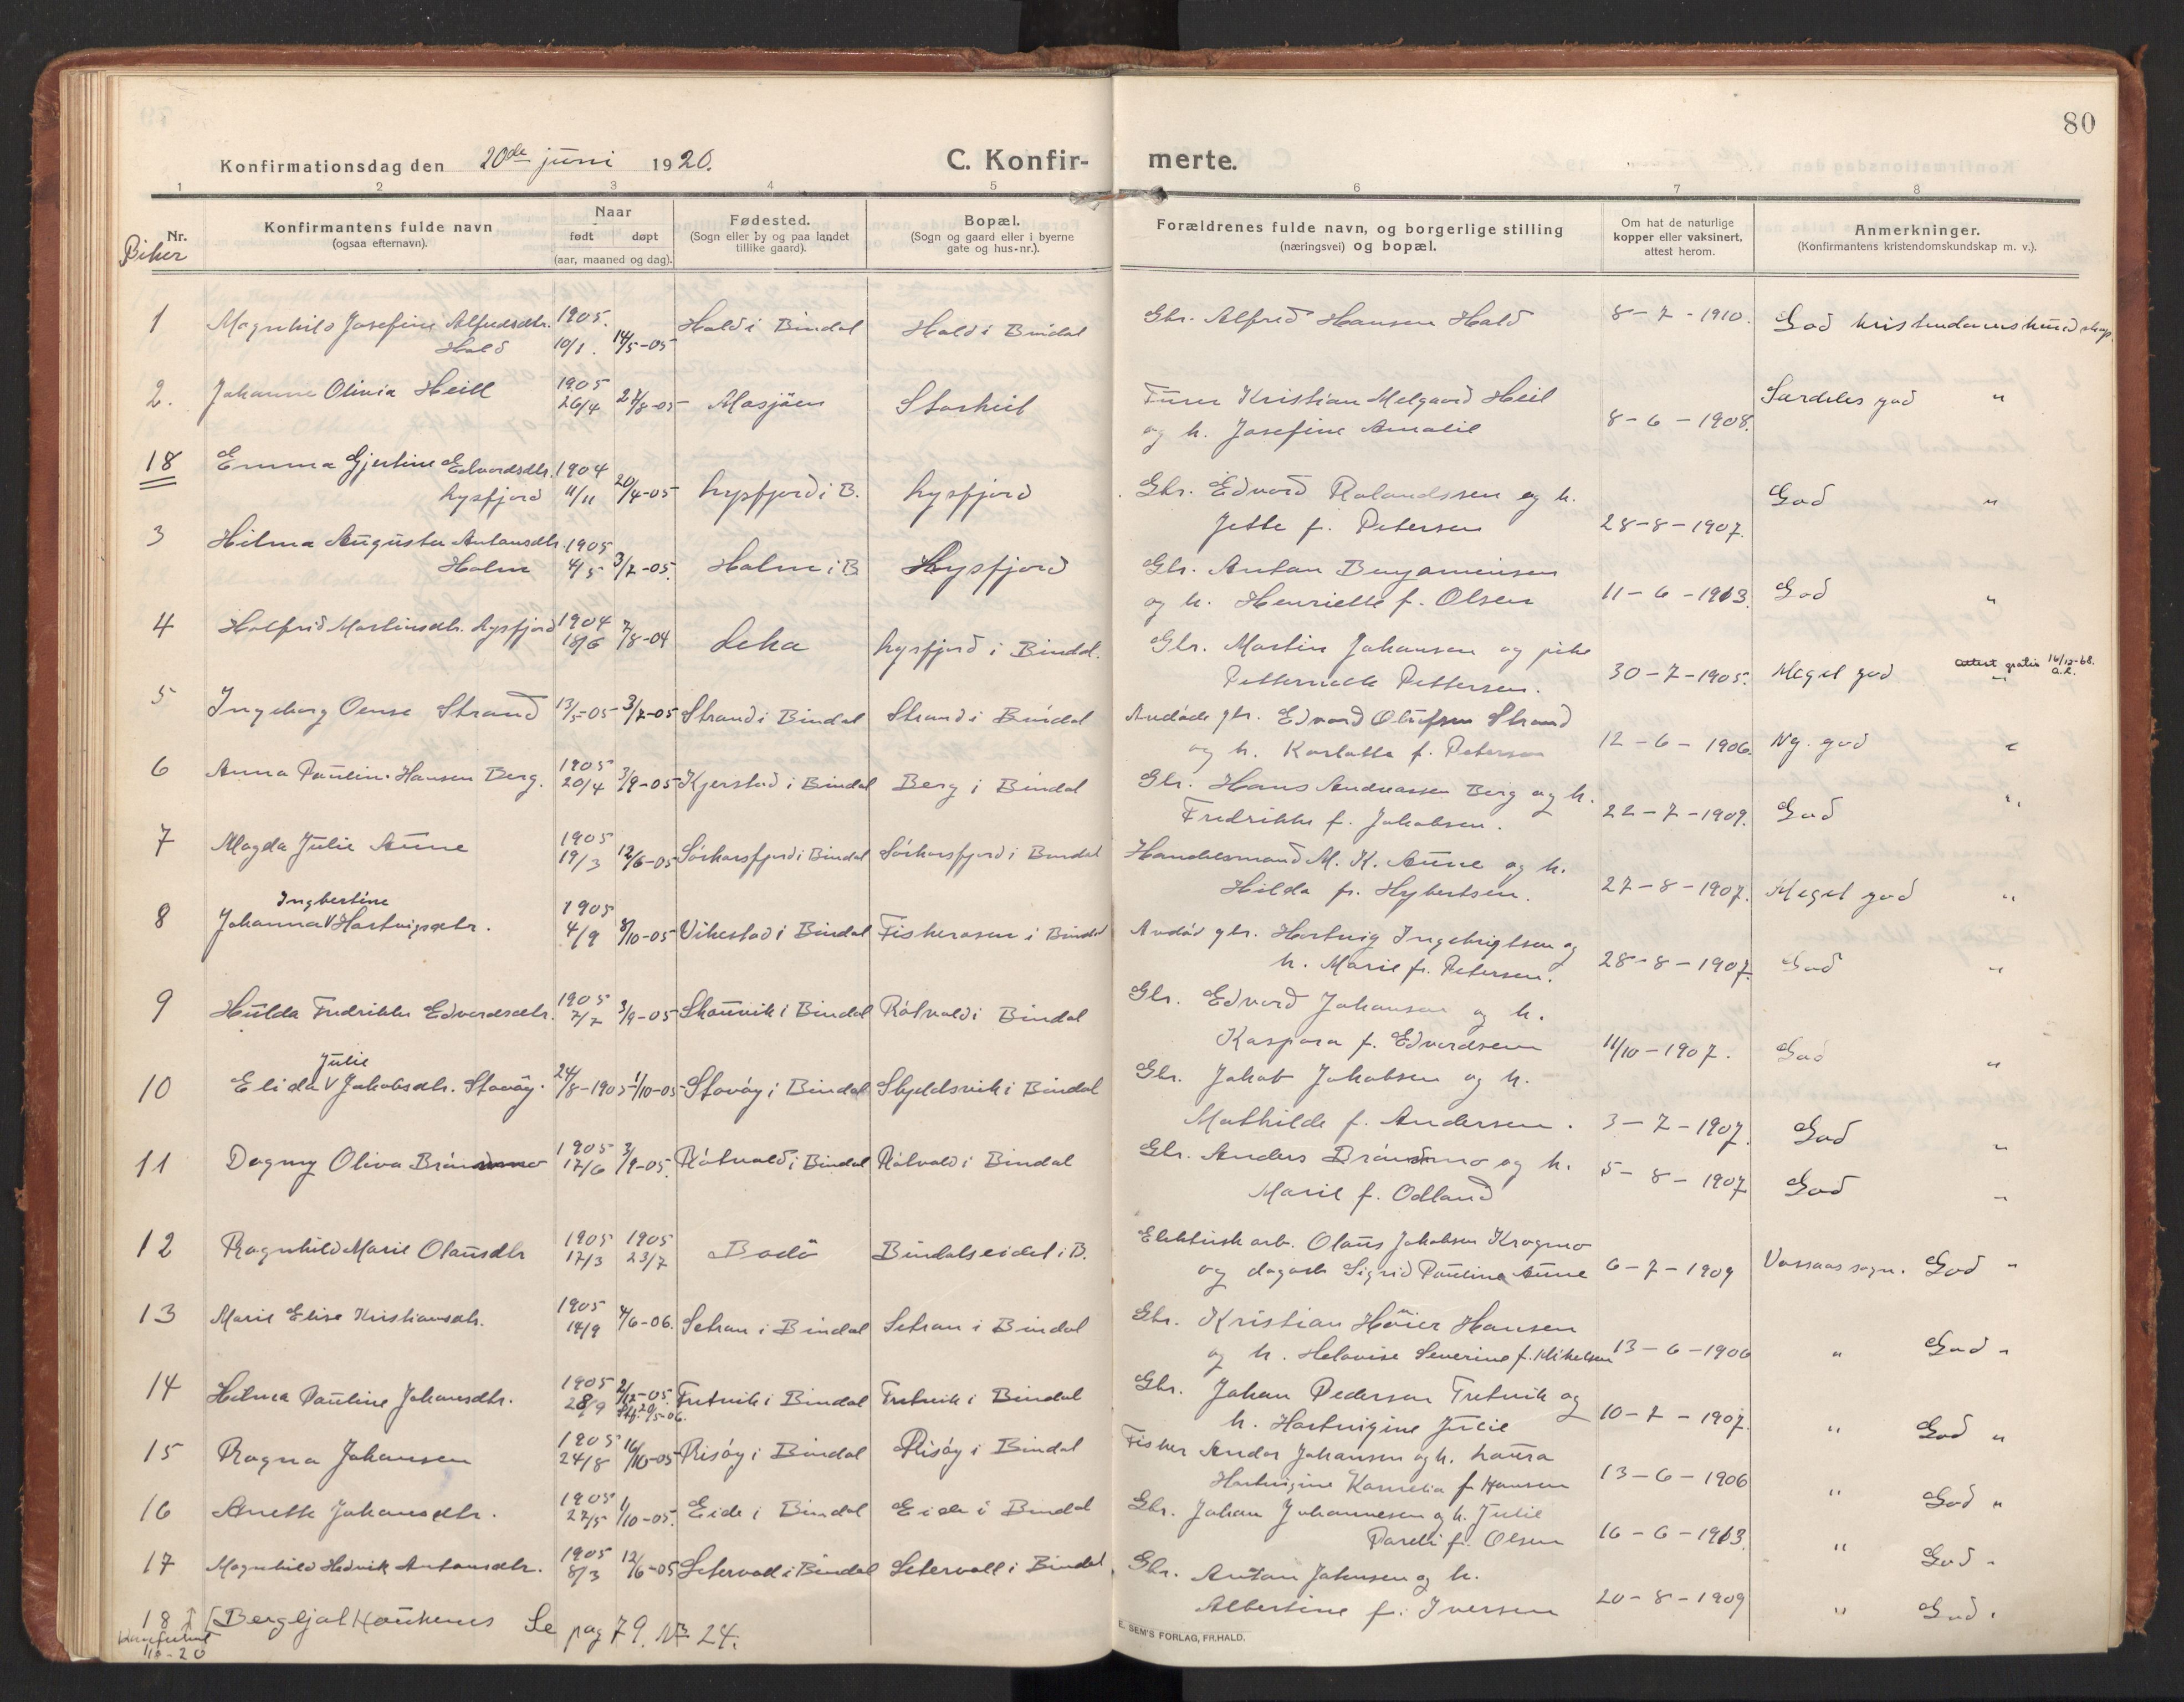 80
Konfirmationsdag den 20de juni 1920. C. Konfir- merte.
1 2 3 4 5 6 7 8
Nr. Konfirmantens fulde navn (ogsaa efternavn). Naar født døpt (aar, maaned og dag). Fødested. (Sogn eller by og paa landet tillike gaard). Bopæl. (Sogn og gaard eller i byerne gate og hus-nr.). Forældrenes fulde navn, og borgerlige stilling (næringsvei) og bopæl. Om hat de naturlige kopper eller vaksinert, attest herom. Anmerkninger. (Konfirmantens kristendomskundskap m. v.).
Piker
1 Magnhild Josefine Alfredsdtr. 1905. Hald i Bindal Hald i Bindal Gbr. Alfred Hansen Hald 8-7-1910. God kristendomskundskap.
Hald 10/1. 14/5-05
2. Johanne Olivia Heill 1905 26/4 27/8-05 Mosjöen Storheil Kristian Melgaard Heil Særdeles god "
og h. Josefine Amalie 8-6-1908.
18 Emma Gjertine Edvardsdtr. 1904 Gbr. Edvard Rolandssen og h. God "
Lysfjord 11/11 20/4-05 Lysfjord i B. Lysfjord Jette f. Petersen 28-8-1907.
3 Hilma Augusta Antonsdtr. 1905 Gbr. Anton Benjaminsen
Holm 4/5 3/7-05. Holm i B Lysfjord og h. Henriette f. Olsen 11-6-1913. God "
4 Halfrid Martinsdtr. Lysfjord 1904 18/6 7/8-04 Leka Lysfjord i Bindal. Gbr. Martin Johansen og pike
Pettersen. 30-7-1905. Meget god " Attest gratis 16/12-68.
5 Ingeborg Oense Strand 13/5-05 3/7-05 Strand i Bindal Strand i Bindal Avdöde gbr. Edvard Olufsen Strand
og h. Karlotte f. Petersen 12-6-1906. Ng. god "
6 Anna Paulin. Hansen Berg. 1905 20/4 3/9-05 Kjerstad i Bindal Berg i Bindal Gbr. Hans Andreassen Berg og h.
Fredrikke f. Jakobsen. 22-7-1909. God "
7 Magda Julie Aune 1905 19/3 12/6-05 Sörhorsfjord i Bindal Sörhorsfjord i Bindal Handelsmand M. K. Aune og h.
Hilda f. Hybertsen. 27-8-1907. Meget god "
Ingbertine
8 Johanna V Hartvigsdtr. 1905 4/9 8/10-05 Vikestad i Bindal Fiskerosen i Bindal Avdöd gbr. Hartvig Ingebrigtsen og
h. Marie f. Petersen. 28-8-1907. God "
9 Hulda Fredrikke Edvardsdtr. 1905 7/7 3/9-05 Skauvik i Bindal Råtvold i Bindal Gbr. Edvard Johansen og h.
Kaspara f. Edvardsen 11/10-1907. God "
Julie
10 Elida V Jakobsdtr. Stovöy. 24/8-1905 1/10-05 Stovöy i Bindal Skjeldsvik i Bindal Gbr. Jakob Jakobsen og h.
Mathilde f. Andersen. 3-7-1907. God "
11 Dagny Oliva Bröndmo 1905 17/6 3/9-05. Råtvold i Bindal Råtvold i Bindal Gbr. Anders Bröndmo og h. 5-8-1907 God "
Marie f. Odland
12 Ragnhild Marie Olausdtr 1905 17/3 1905 23/7 Bodö Bindalseidet i B. Elektrisk arb. Olaus Jakobsen Krogmo
og Sigrid Pauline Aune 6-7-1909 Vassaas sogn. God "
13 Marie Elise Kristiansdtr. 1905 14/9 4/6-06. Setran i Bindal Setran i Bindal Gbr. Kristian Höier Hansen
og h. Helovise Severine f. Mikelsen 13-6-1906 " God "
14 Hilma Pauline Johansdtr. 1905 28/9 2/12-05. Stf. 20/5-06. Fretvik i Bindal Fretvik i Bindal Gbr. Johan Pedersen Fretvik og
h. Hartvigine Julie 10-7-1907. " God "
15 Ragna Johansen 1905 24/8 10/10-05 Risöy i Bindal Risöy i Bindal Fisker Andor Johansen og h. Laura
Hartvigine Kornelia f. Hansen 13-6-1906 " God "
16 Anette Johansdtr. 1905 27/5 1/10-05. Eide i Bindal Eide i Bindal Gbr. Johan Johannesen og h. Julie
Pareli f. Olsen 16-6-1913. " God "
17 Magnhild Hedvik Antonsdtr. 1905 8/3 12/6-05 Setervoll i Bindal Setervoll i Bindal Gbr. Anton Johnsen og h.
Albertine f. Iversen 20-8-1909 " God "
18 [Bergljot Haukenes Se pag 79. No 24.
Konfirmert
-20
E. SEM'S FORLAG, FR.HALD.